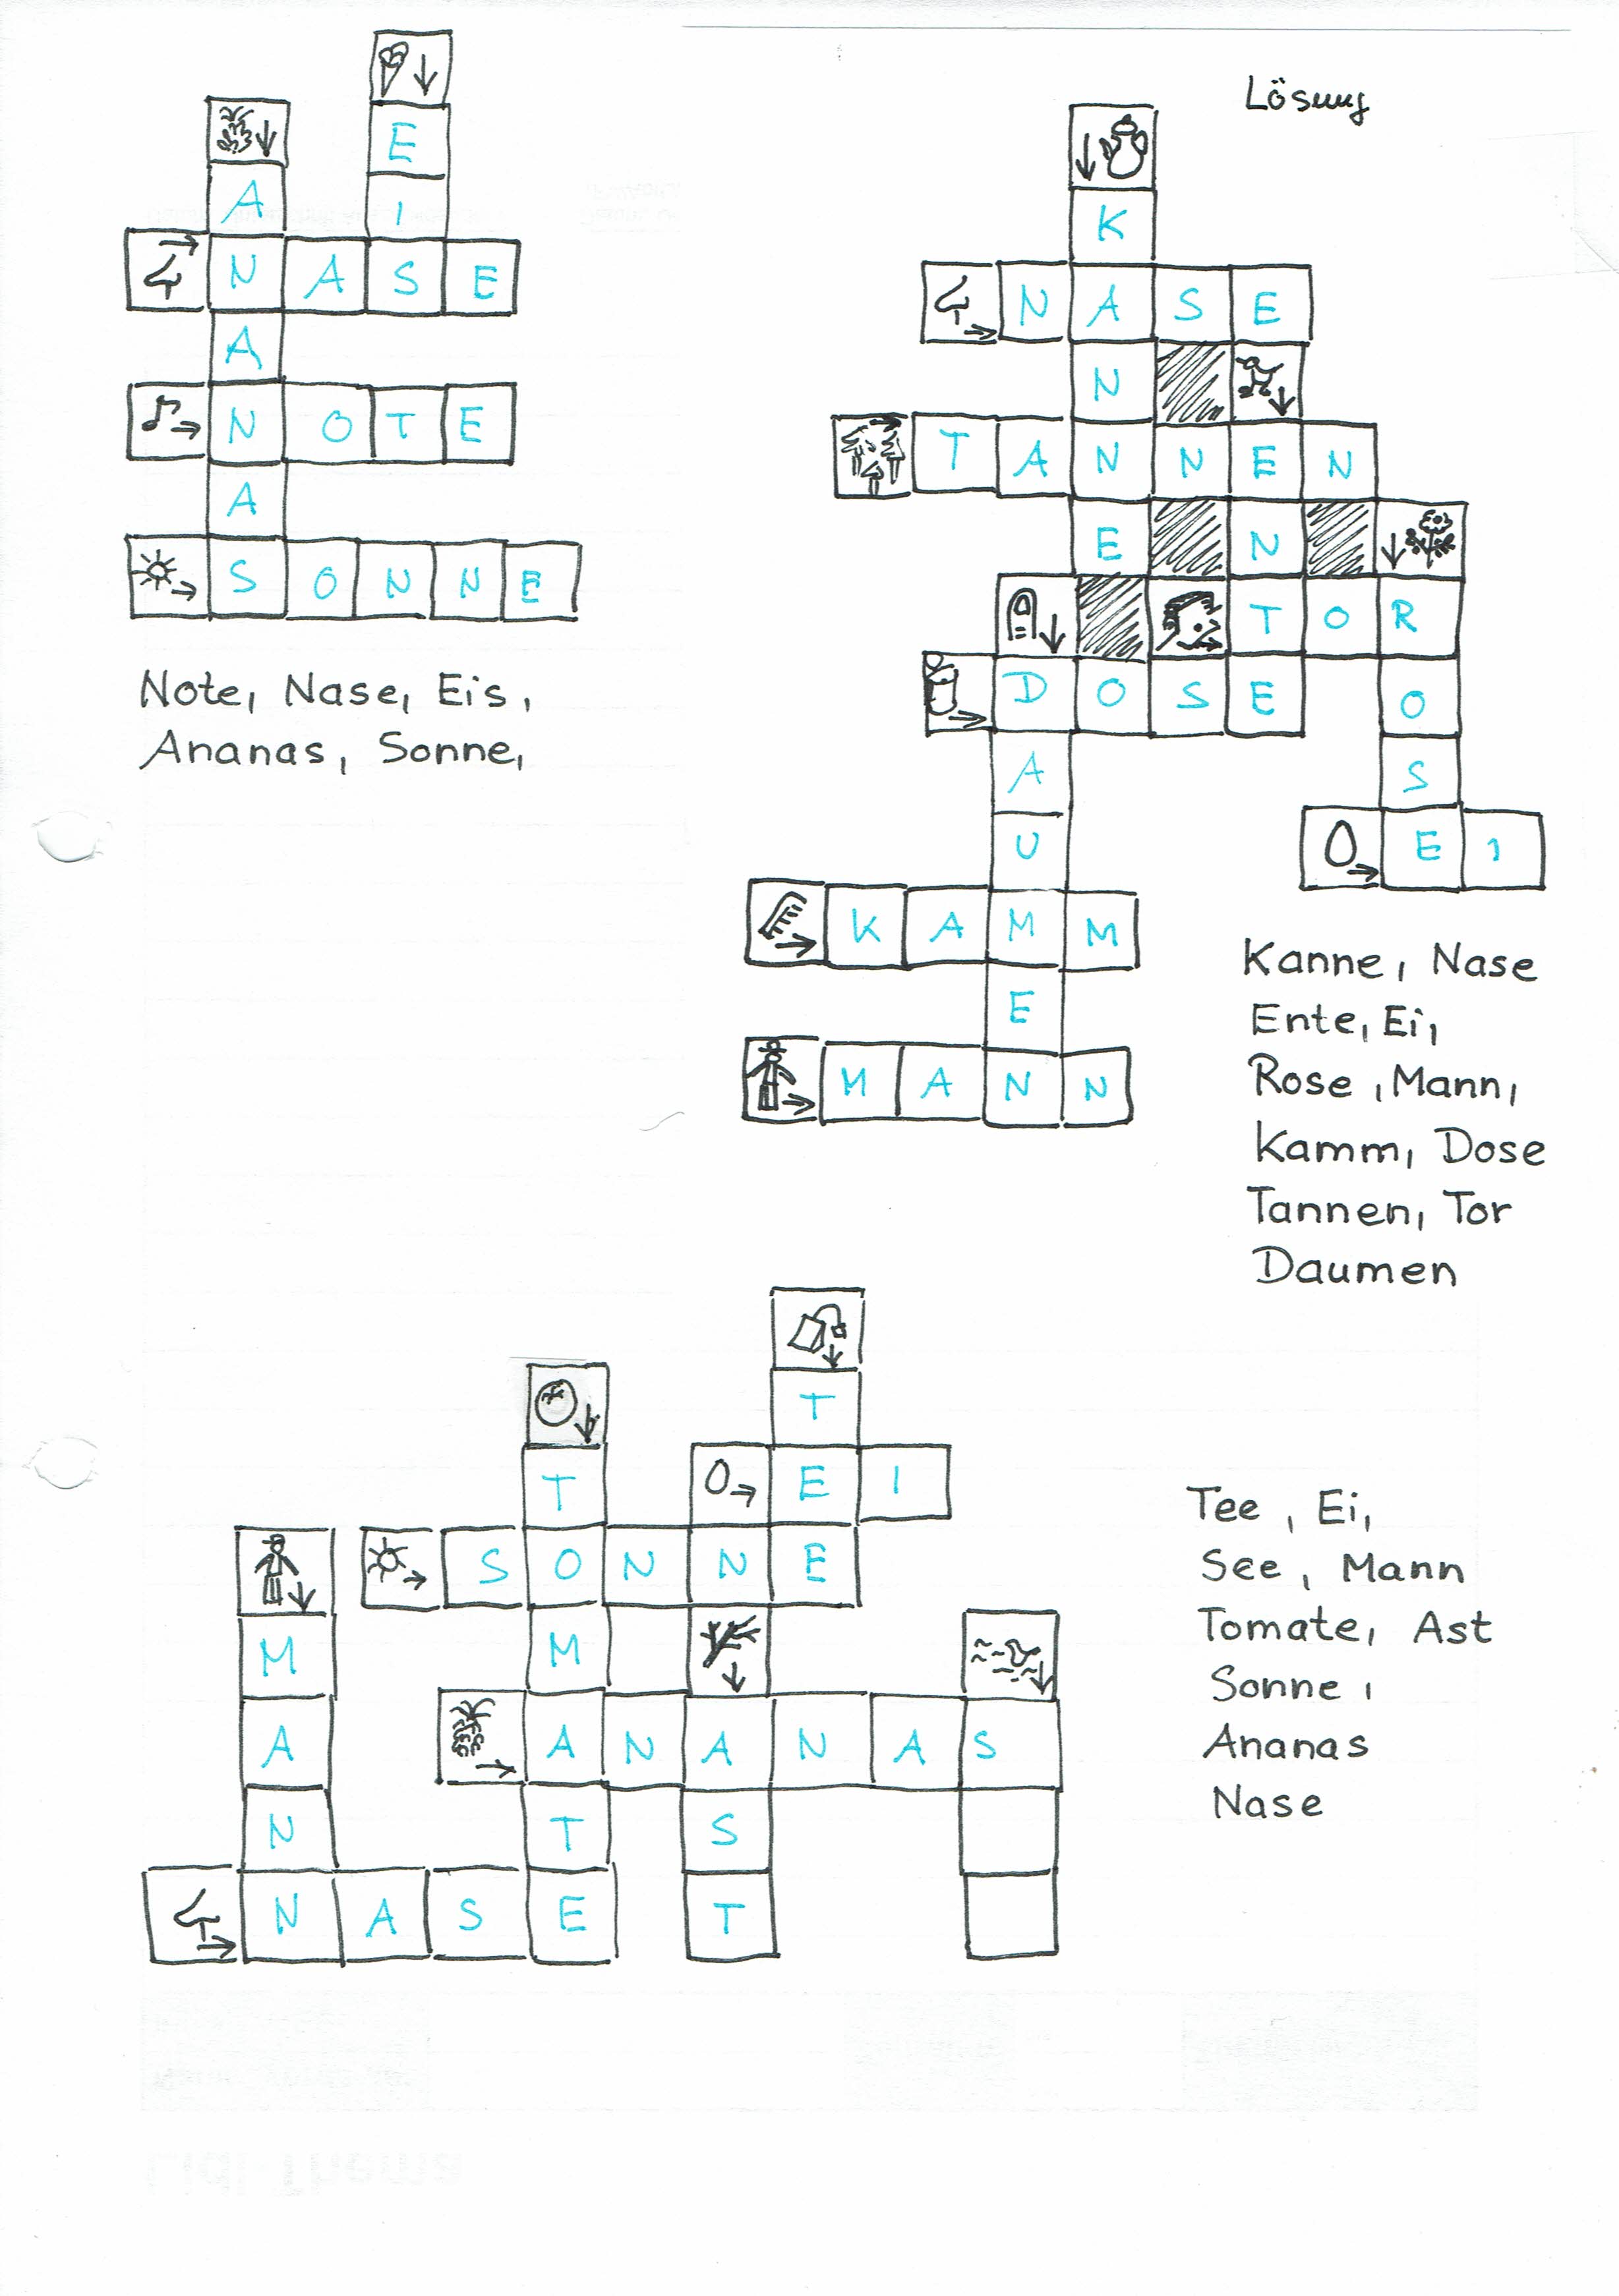 Lösung
E
A
I
NASE
A
NOTE
A
SONNE
Note, Nase, Eis,
Ananas, Sonne,
K
NASE
N
TANNEN
E
N
TOR
DOSE
O
A
S
U
EI
KAMM
E
MANN
Kanne, Nase
Ente, Ei,
Rose, Mann,
Kamm, Dose
Tannen, Tor
Daumen
T
T
EI
SONNE
M
M
A
ANANAS
N
T
S
NASE
T
Tee, Ei,
See, Mann
Tomate, Ast
Sonne,
Ananas
Nase